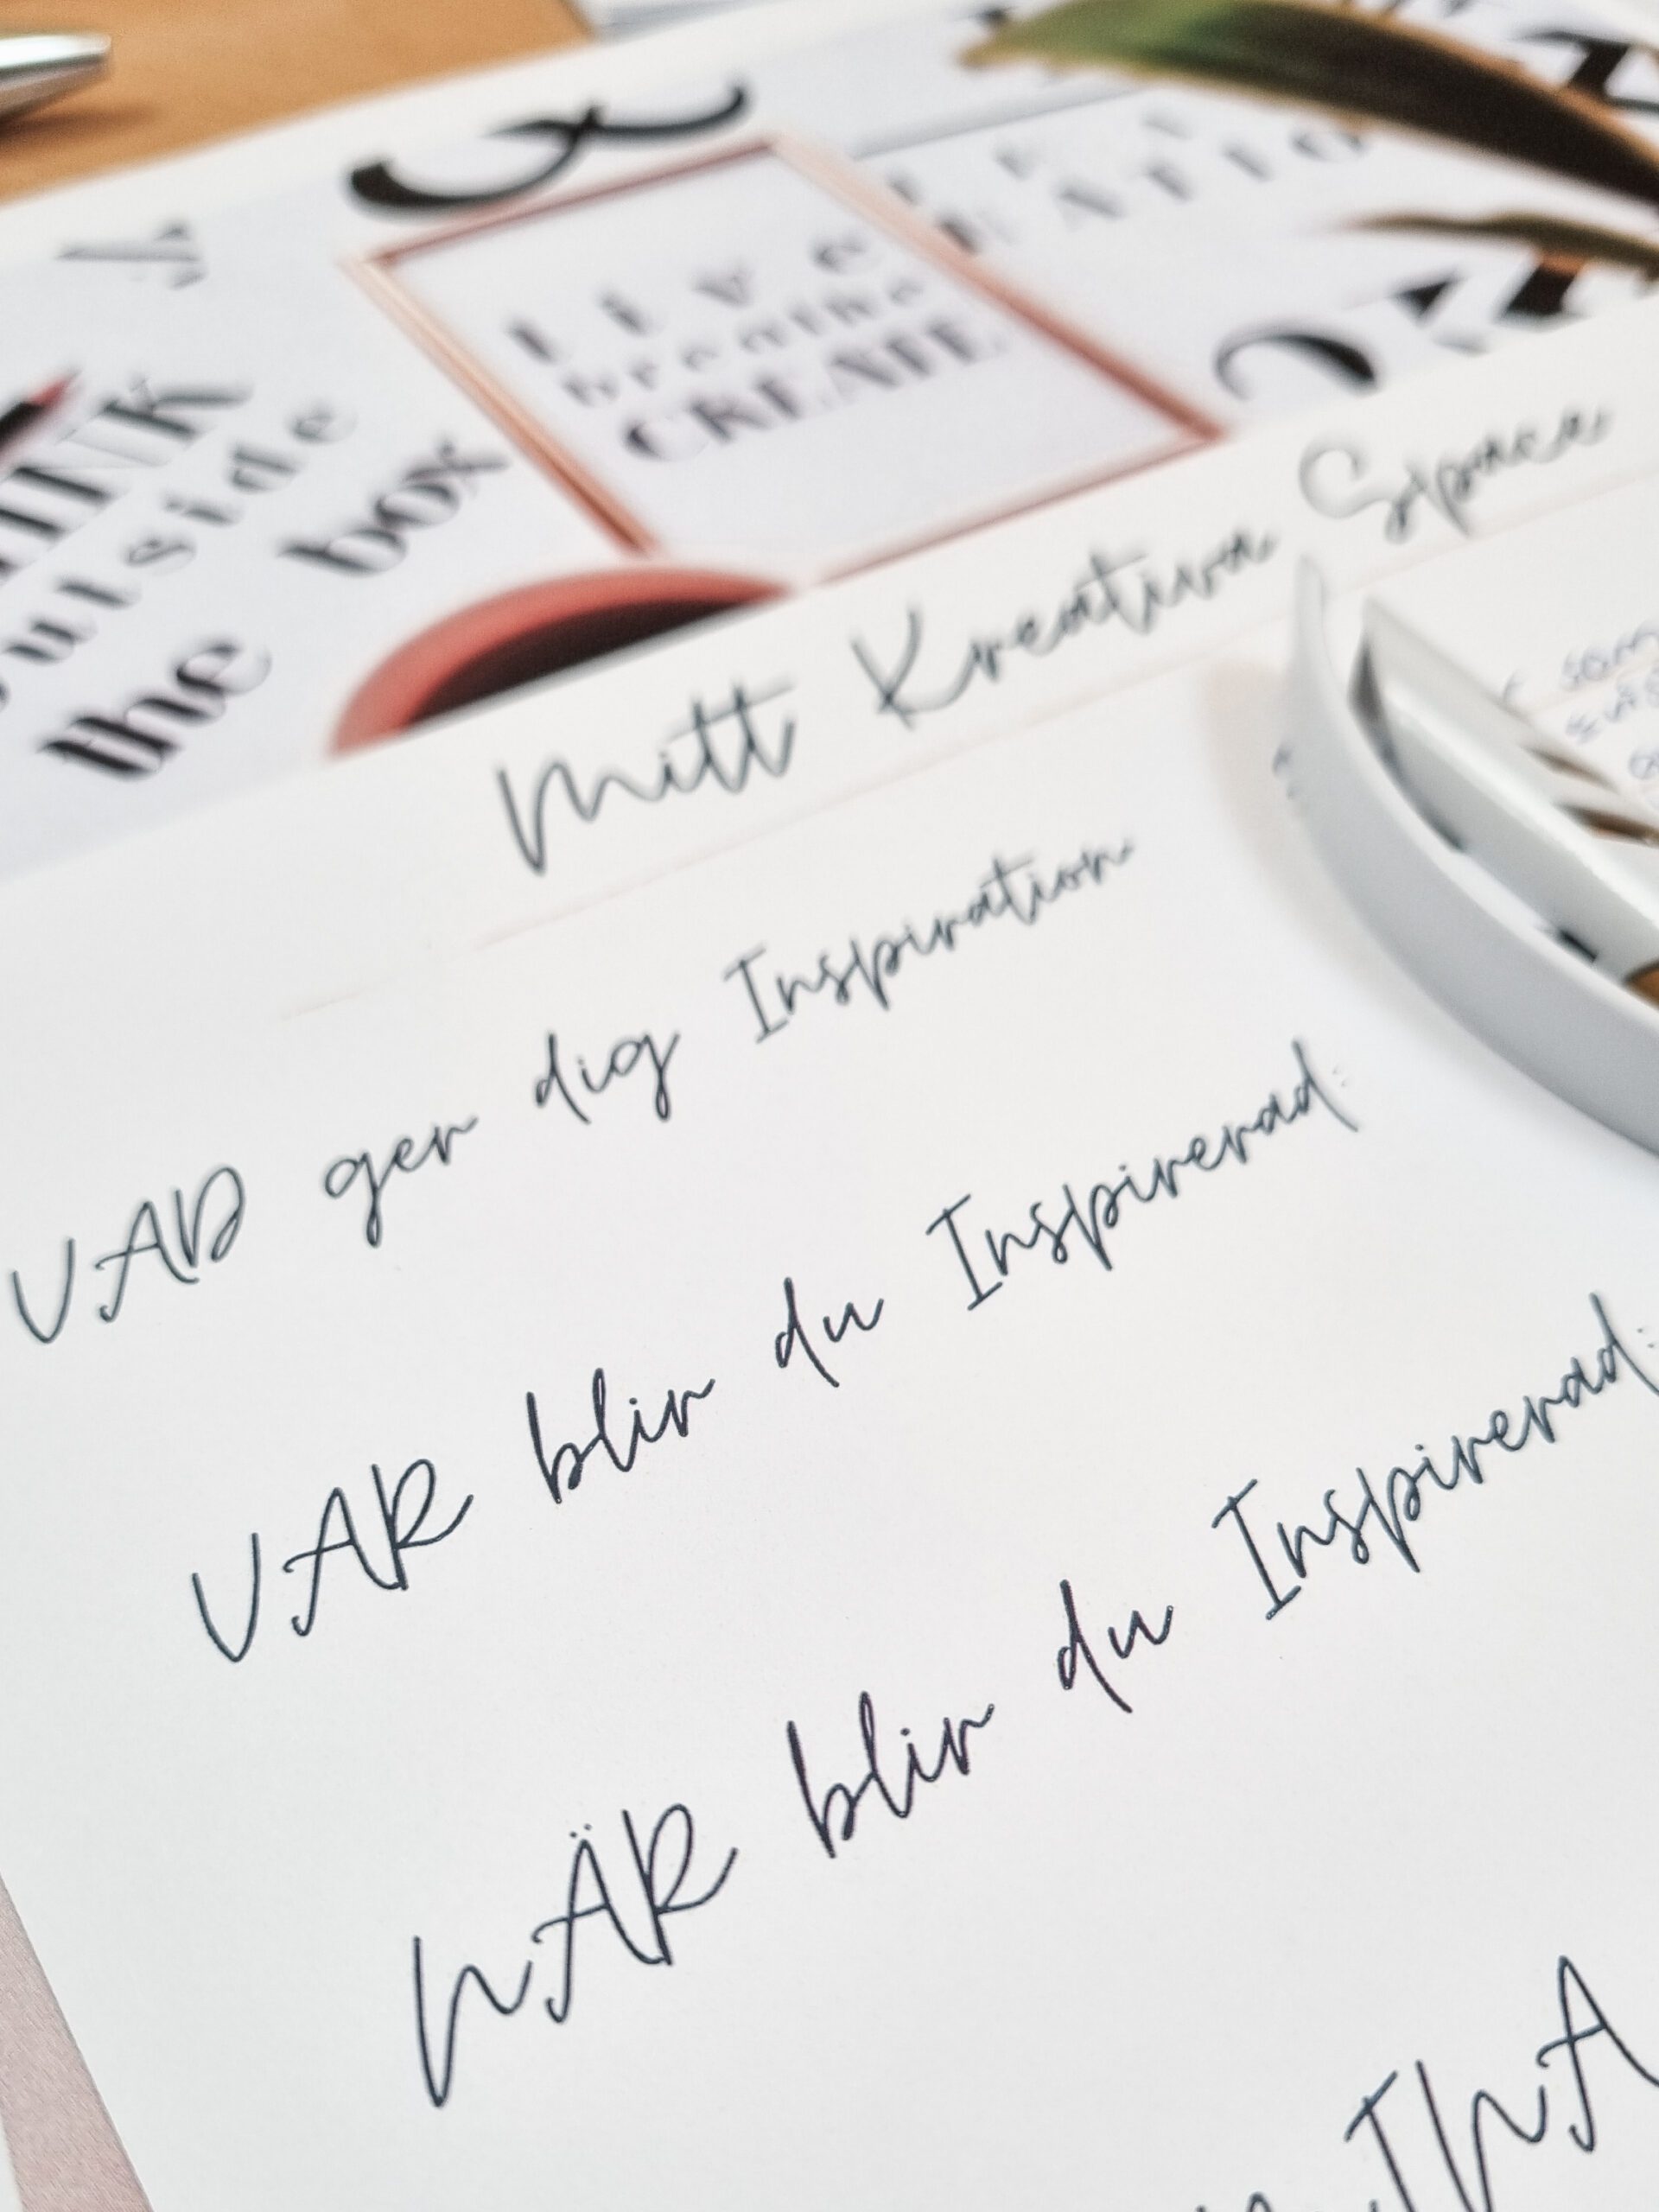 &
LIVE
breathe
CREATE
outside
the box
Mitt Kreativa Space
VAD ger dig Inspiration
VAR blir du Inspirerad:
NÄR blir du Inspirerad: